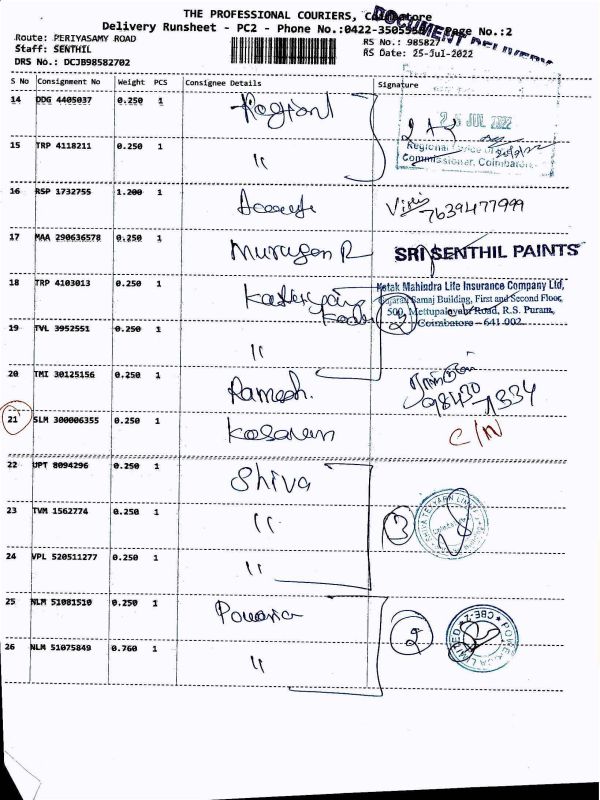 THE PROFESSIONAL COURIERS, Coimbatore
DOCUMENT DELIVERY
Delivery Runsheet - PC2 - Phone No.:0422-3505555 Page No.:2
Route: PERIYASAMY ROAD
RS No.: 985827
Staff: SENTHIL
RS Date: 25-Jul-2022
DRS No.: DCJB98582702
S No Consignment No Weight PCS Consignee Details Signature
14 DDG 4405037 0.250 1
JUL 2022
15 TRP 4118211 0.250 1 "
Regional Office of
Commissioner, Coimbatore
16 RSP 1732755 1.200 1
7639477999
17 MAA 290636578 0.250 1 Murugan R SRI SENTHIL PAINTS
18 TRP 4103013 0.250 1
Kotak Mahindra Life Insurance Company Ltd,
Gujarat Samaj Building, First and Second Floor,
500, Mettupalayam Road, R.S. Puram,
Coimbatore - 641 002
3
19 TVL 3952551 0.250 1 "
20 TMI 30125156 0.250 1 Ramesh. 98430
21 SLM 300006355 0.250 1 Kesavan C/N
22 UPT 8094296 0.250 1 Shiva
23 TVM 1562774 0.250 1 " 3
24 VPL 520511277 0.250 1 "
25 NLM 51081510 0.250 1 2
26 NLM 51075849 0.760 1 "